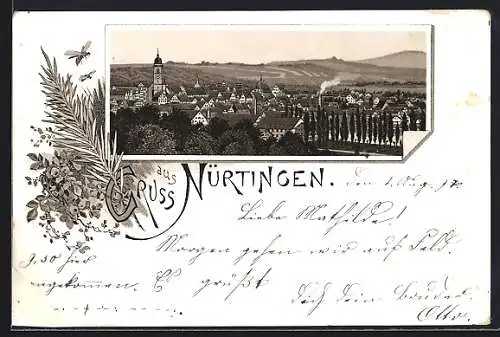 Gruss aus
NÜRTINGEN.
den 1. Aug. 97.
Liebe Mathilde!
Morgen gehen wir auf Feld.
9.50 hier
angekommen. Es grüßt
Dich Dein Bruder
Otto.